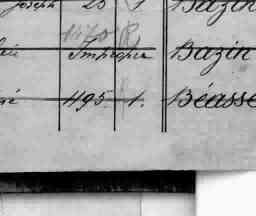 Joseph 25 1 Bazin
1470
Impropre Bazin
495 1. Béasse